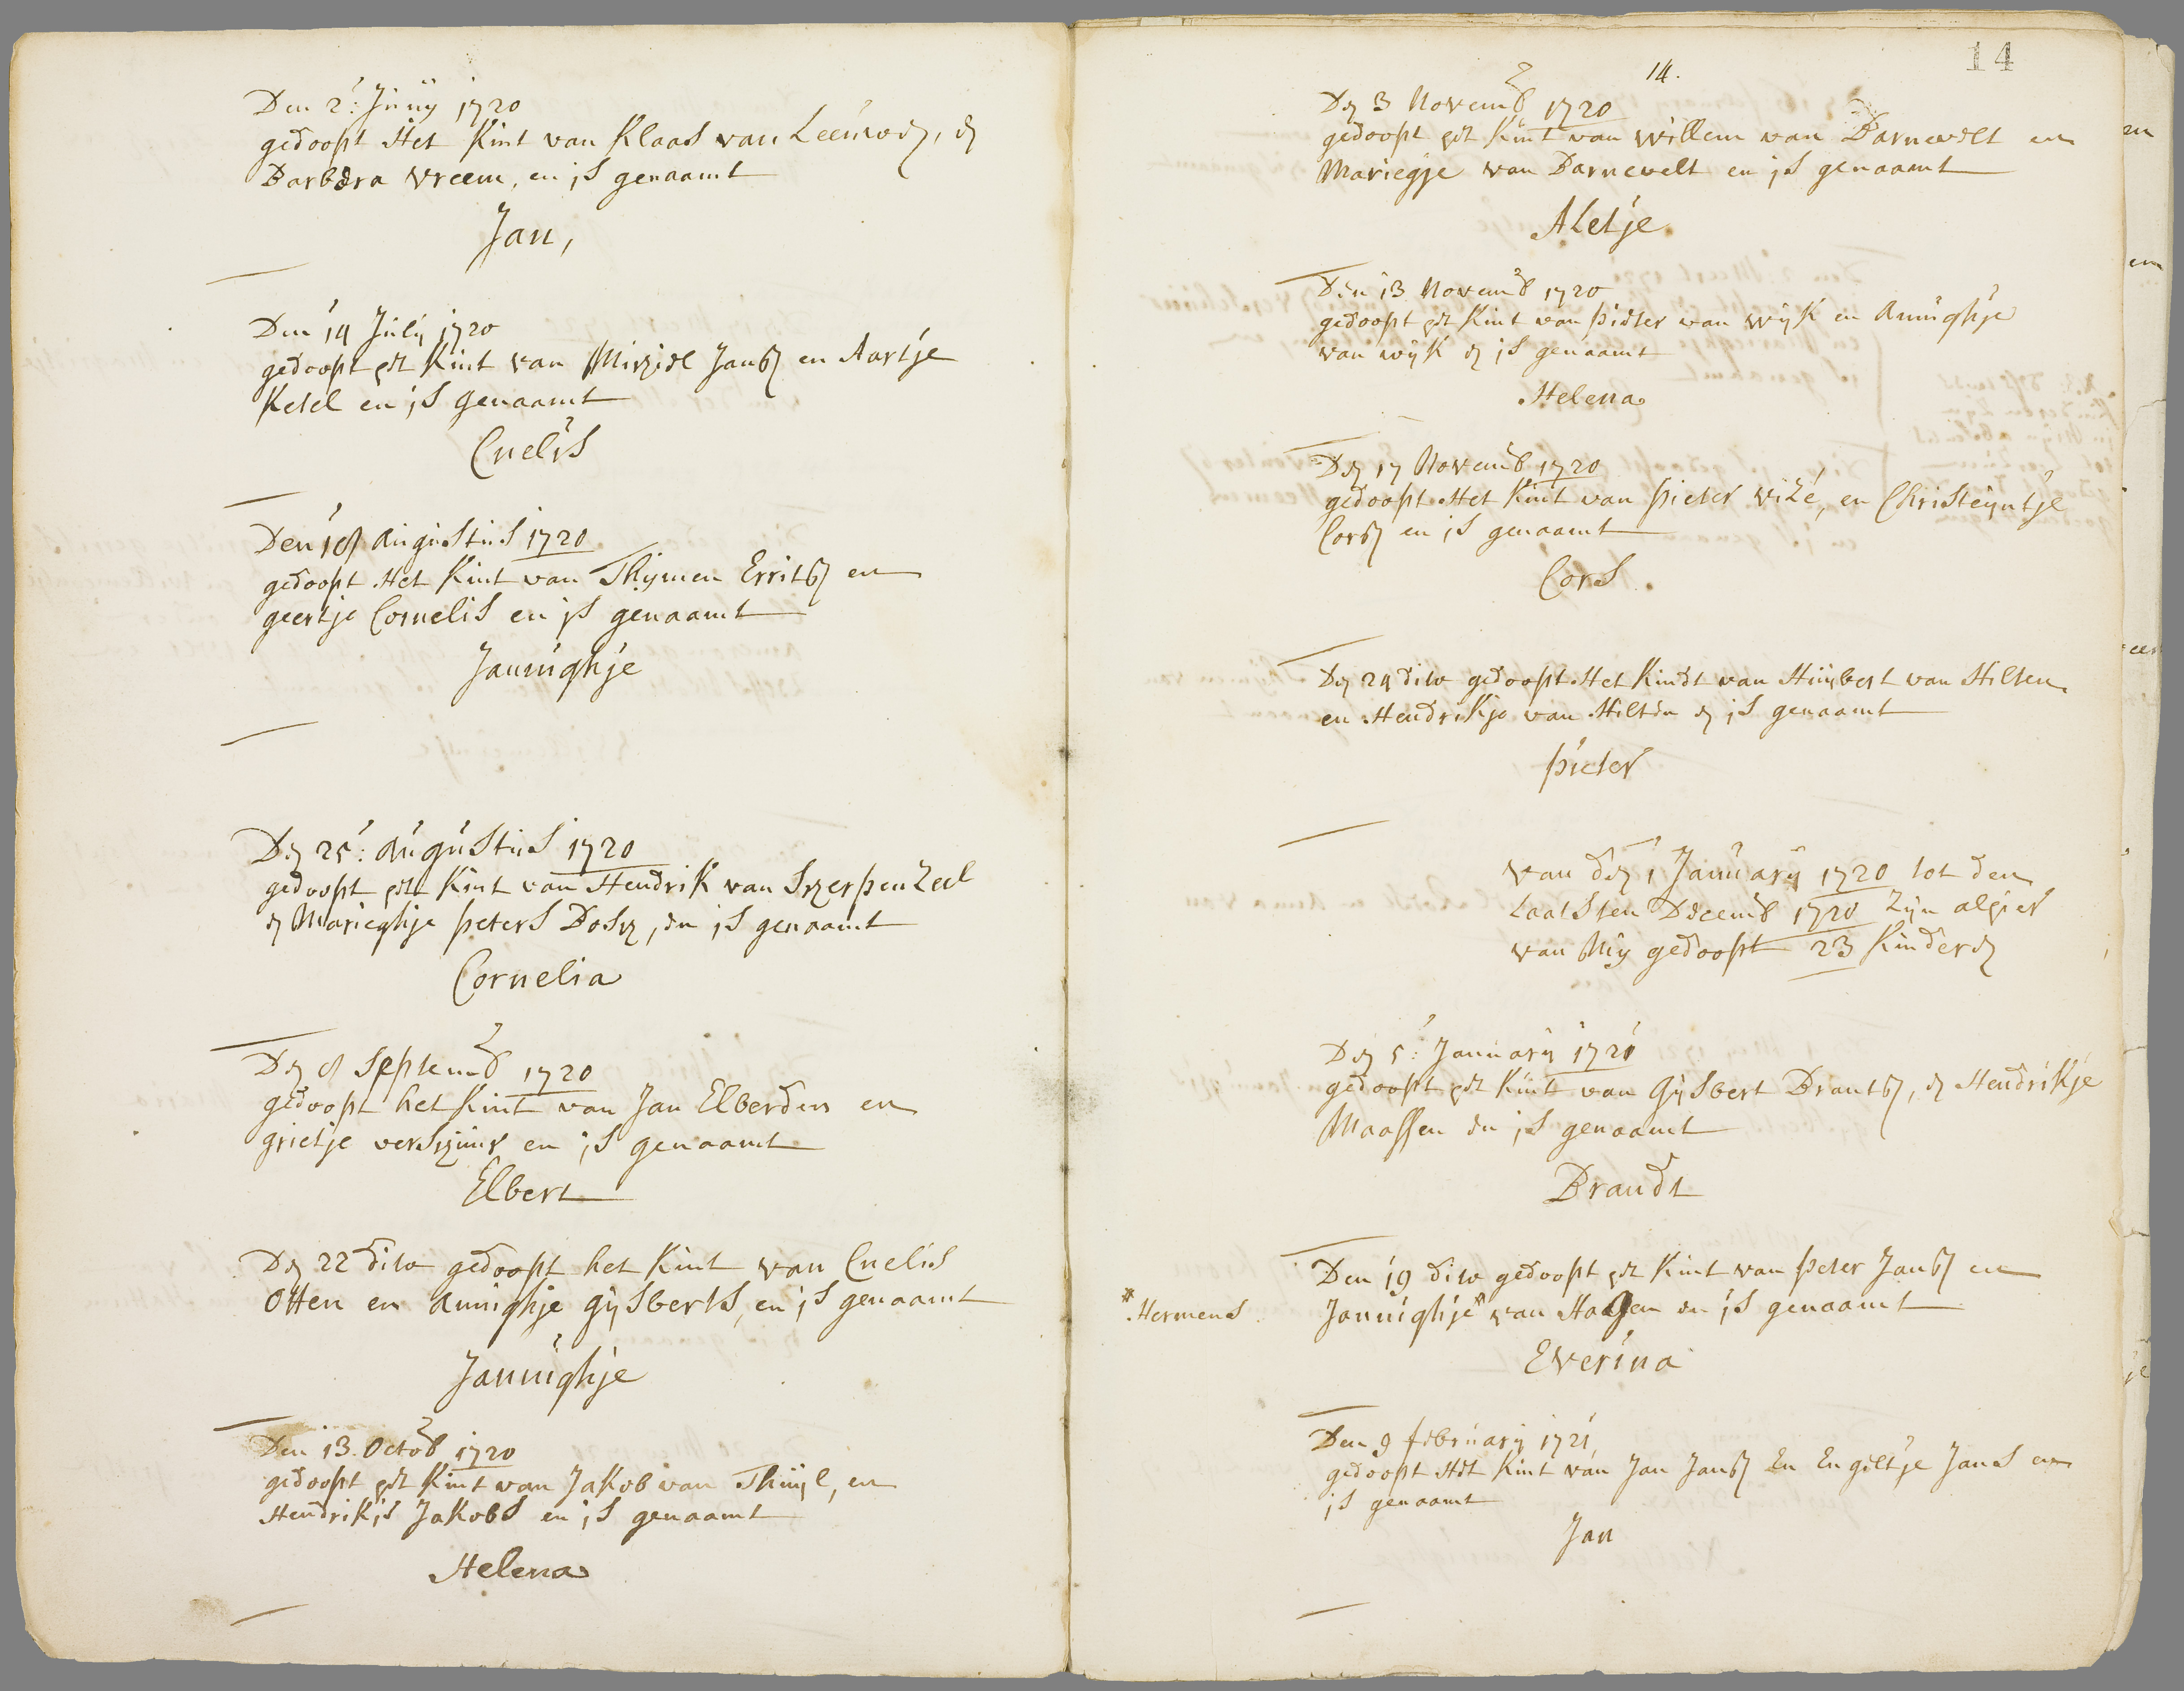 Den 2: Junij 1720
gedoopt Het Kint van Klaas van Leeuwen, en
Barbera Vreem, en is genaamt
Jan,
Den 14 Julij 1720
gedoopt het Kint van Michiel Jansz en Aartje
Ketel en is genaamt
Cnelis
Den 18 Augustus 1720
gedoopt Het Kint van Thijmen Erritsz en
geertje Cornelis en is genaamt
Jannighje
Den 25: Augustus 1720
gedoopt het Kint van Hendrik van Scherpenzeel
en Marieghje peters Dosch, en is genaamt
Cornelia
Den 8 Septemb 1720
gedoopt het Kint van Jan Elberden en
grietje verschuur en is genaamt
Elbert
Den 22 dito gedoopt het Kint van Cnelis
Otten en Annighje gijsberts, en is genaamt
Jannighje
Den 13 Octob 1720
gedoopt het Kint van Jakob van Thuijl, en
Hendrikje Jakobs en is genaamt
Helena
14.
14
Den 3 Novemb 1720
gedoopt het Kint van Willem van Barnevelt en
Mariegje van Barnevelt en is genaamt
Aletje
Den 13 Novemb 1720
gedoopt het Kint van pieter van Wijk en Annighje
van wijk en is genaamt
Helena
Den 17 Novemb 1720
gedoopt Het Kint van pieter Vizé, en Christeijntje
Corsz en is genaamt
Cors
Den 24 dito gedoopt Het Kindt van Huijbert van Hilten
en Hendrikje van Hilten en is genaamt
pieter
van den 1 Januarij 1720 tot den
Laatsten Decemb 1720 Zijn alhier
van Mij gedoopt 23 Kinderen
Den 5: Januarij 1721
gedoopt het Kint van Gijsbert Brantsz, en Hendrikje
Maassen en is genaamt
Brandt
Den 19 dito gedoopt het Kint van peter Jansz en
* Hermens
Jannighje * van Hagen en is genaamt
Everina
Den 9 februarij 1721,
gedoopt Het Kint van Jan Jansz En Engeltje Jans en
is genaamt
Jan